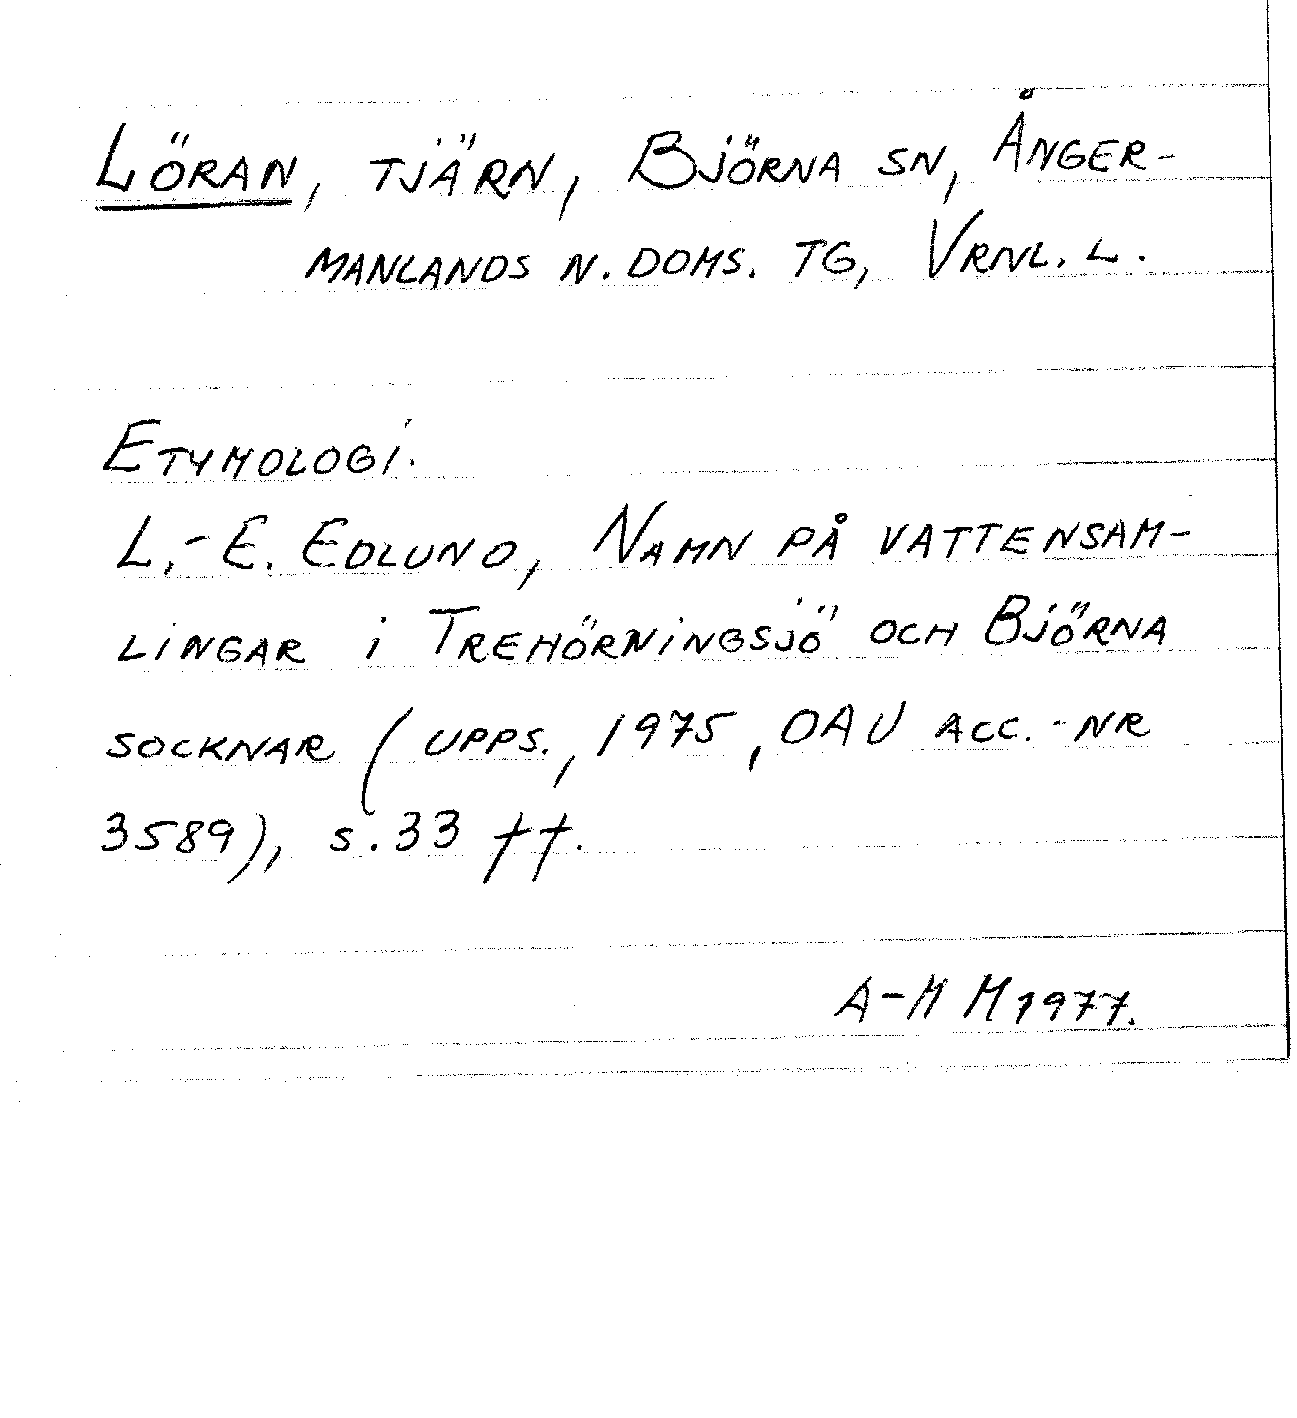 LÖRAN, TJÄRN, BJÖRNA SN, ÅNGER-
MANLANDS N. DOMS. TG, VRNL. L.
ETYMOLOGI.
L.-E. EDLUND, NAMN PÅ VATTENSAM-
LINGAR I TREHÖRNINGSJÖ OCH BJÖRNA
SOCKNAR (UPPS., 1975, OAU ACC.-NR
3589), s. 33 ff.
A-M M 1977.